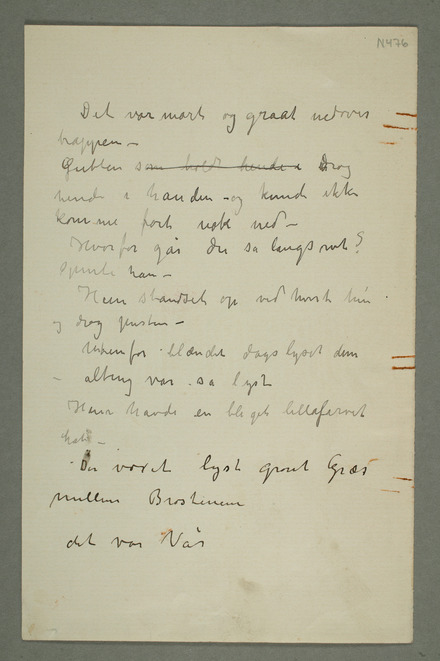 N476
Det var mørk og graat nedover
trappen –
Gutten som holdt hende i Drog
hende i handen – og kunde ikke
komme fort nok ned –
Hvorfor går du så langsomt?
spurte han –
Hun standset op ved hvert trin
og drog pusten –
Udenfor blændet dagslyset dem
– alting var så lyst
Hun havde en bleget lillafarvet
hat –
Der voxet lyst grønt Græs
mellem Brostenene
det var Vår